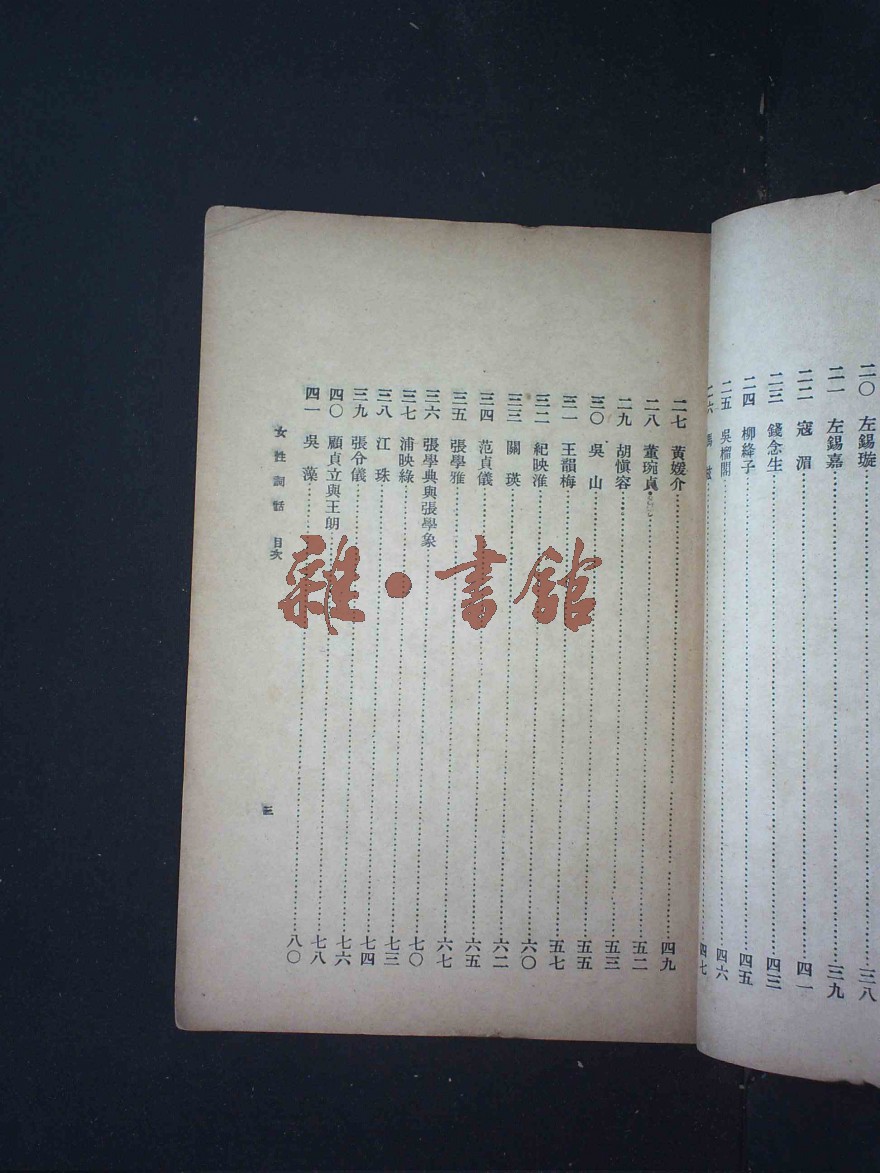 二〇 左錫璇……三八
二一 左錫嘉……三九
二二 寇 湄……四一
二三 錢念生……四三
二四 柳絳子……四五
二五 吳榴閣……四六
二六 ……四七
二七 黃媛介……四九
二八 董琬貞……五二
二九 胡愼容……五三
三〇 吳 山……五五
三一 王韻梅……五七
三二 紀映淮……六〇
三三 關 瑛……六二
三四 范貞儀……六五
三五 張學雅……六七
三六 張學典與張學象……七〇
三七 浦映綠……七三
三八 江 珠……七四
三九 張令儀……七六
四〇 顧貞立與王朗……七八
四一 吳 藻……八〇
女性詞話 目次
三
雜·書館